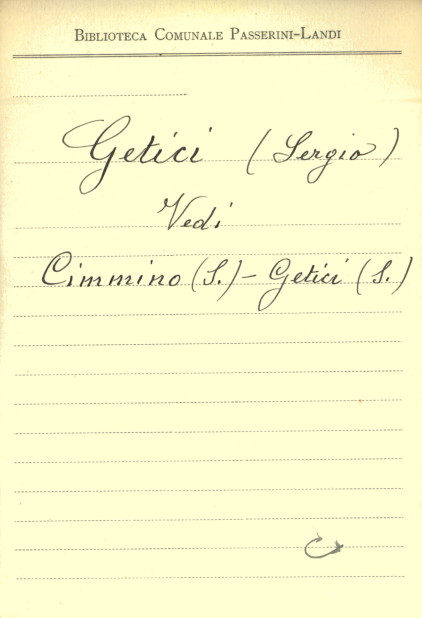 BIBLIOTECA COMUNALE PASSERINI-LANDI
Getici (Sergio)
Vedi
Cimmino (S.) - Getici (S.)